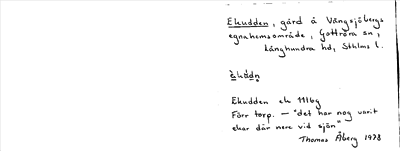 Ekudden, gård å Vängsjöbergs
egnahemsområde, Gottröra sn,
Långhundra hd, Sthlms l.
Ekudden ek 1116g
Förr torp. — "det har nog varit
ekar där nere vid sjön"
Thomas Åberg 1978